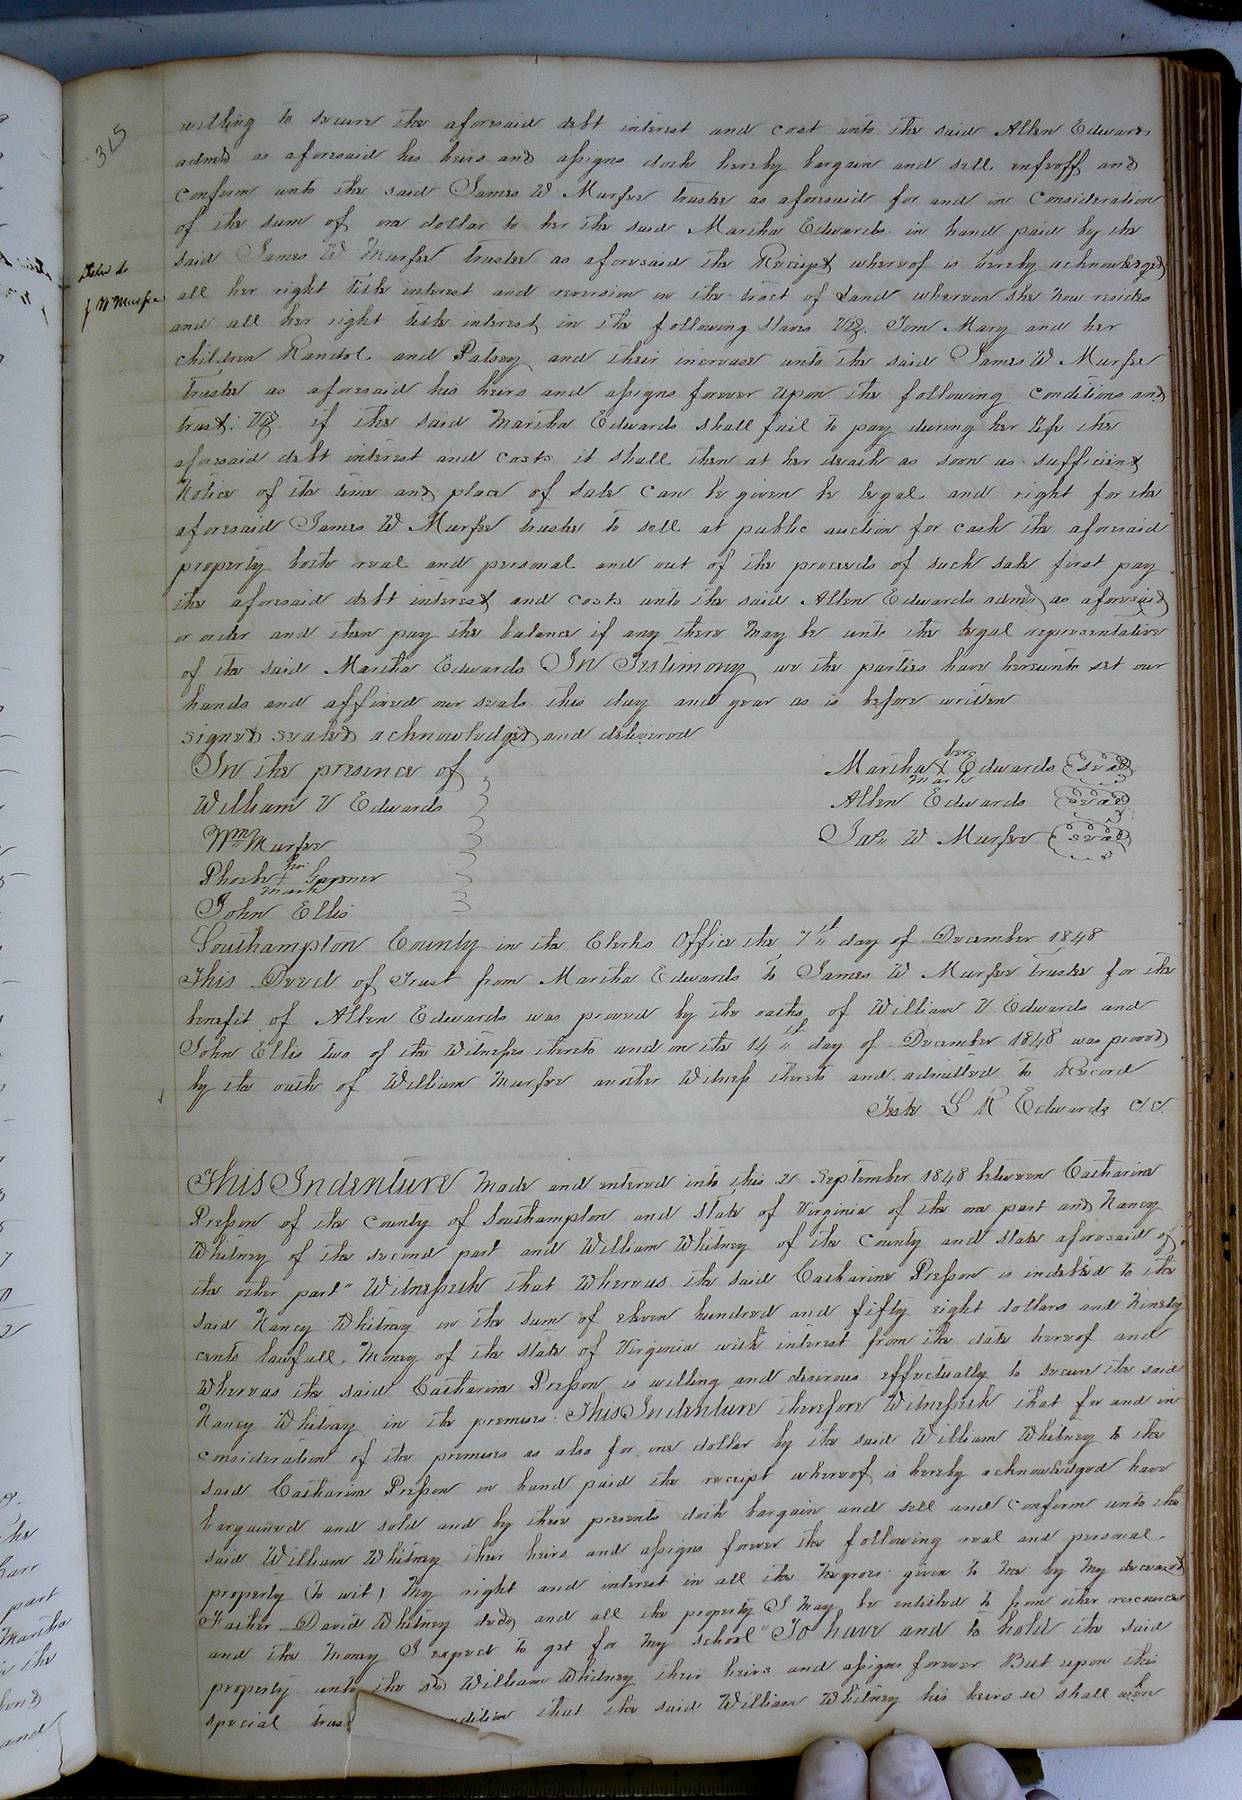 315
willing to secure the aforesaid debt interest and cost unto the said Allen Edwards
admr as aforesaid his heirs and assigns doth hereby bargain and sell enfeoff and
conform unto the said James W Murfee trustee as aforesaid for and in Consideration
of the sum of one dollar to her the said Martha Edwards in hand paid by the
said James W Murfee trustee as aforesaid the Receipt whereof is hereby acknowledged
J W Murfee
all her right title interest and reversion in the tract of Land whereon she now resides
and all her right title interest in the following slaves Viz. Tom Mary and her
children Randol and Patsey and their increase unto the said James W Murfee
trustee as aforesaid his heirs and assigns forever upon the following conditions and
trust: Viz. if the said Martha Edwards shall fail to pay during her life the
aforesaid debt interest and costs it shall then at her death as soon as sufficient
Notice of the time and place of sale can be given be legal and right for the
aforesaid James W Murfee trustee to sell at public auction for cash the aforesaid
property both real and personal and out of the proceeds of such sale first pay
the aforesaid debt interest and costs unto the said Allen Edwards admr as aforesaid
or order and then pay the balance if any there may be unto the legal representative
of the said Martha Edwards In Testimony we the parties have hereunto set our
hands and affixed our seals this day and year as is before written
signed sealed acknowledged and delivered
In the presence of
William V Edwards
Wm Murfee
Phoebe her + mark
John Ellis
Martha her + mark Edwards (seal)
Allen Edwards (seal)
Jas W Murfee (seal)
Southampton County in the Clerks Office the 7th day of December 1848
This Deed of Trust from Martha Edwards to James W Murfee trustee for the
benefit of Allen Edwards was proved by the oaths of William V Edwards and
John Ellis two of the Witnesses thereto and on the 14th day of December 1848 was proved
by the oath of William Murfee another Witness thereto and admitted to Record
Teste L R Edwards C.C.
This Indenture Made and entered into this 2 September 1848 between Catharine
Presson of the County of Southampton and State of Virginia of the one part and Nancy
Whitney of the second part and William Whitney of the County and State aforesaid of
the other part" Witnesseth that Whereas the said Catharine Presson is indebted to the
said Nancy Whitney in the sum of eleven hundred and fifty eight dollars and Ninety
cents lawfull Money of the state of Virginia with interest from the date hereof and
Whereas the said Catharine Presson is willing and desirous effectually to secure the said
Nancy Whitney in the premises. This Indenture therefore Witnesseth that for and in
consideration of the premises as also for one dollar by the said William Whitney to the
said Catharine Presson in hand paid the receipt whereof is hereby acknowledged have
bargained and sold and by these presents doth bargain and sell and conform unto the
said William Whitney their heirs and assigns forever the following real and personal
property (to wit) My right and interest in all the Negroes given to me by My deceased
Father David Whitney decd and all the property I may be entitled to from other resources
and the Money I expect to get for my school" To have and to hold the said
property unto the sd William Whitney their heirs and assigns forever But upon this
special trus dition that the said William Whitney his heirs &c shall when